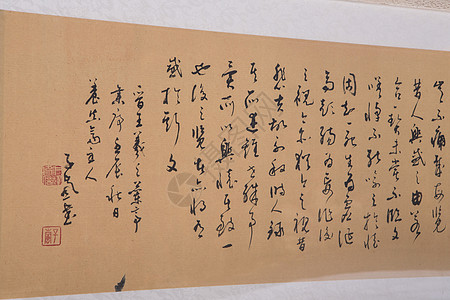 豈不痛哉每覽
昔人興感之由若
合一契未嘗不臨文
嗟悼不能喻之於懷
固知死生為虛誕
齊彭殤為妄作後
之視今亦猶今之視昔
悲夫故列敘時人錄
其所述雖世殊事
異所以興懷其致一
也後之覽者亦將有
感於斯文
晉王羲之蘭亭
庚辰秋日
齋主人